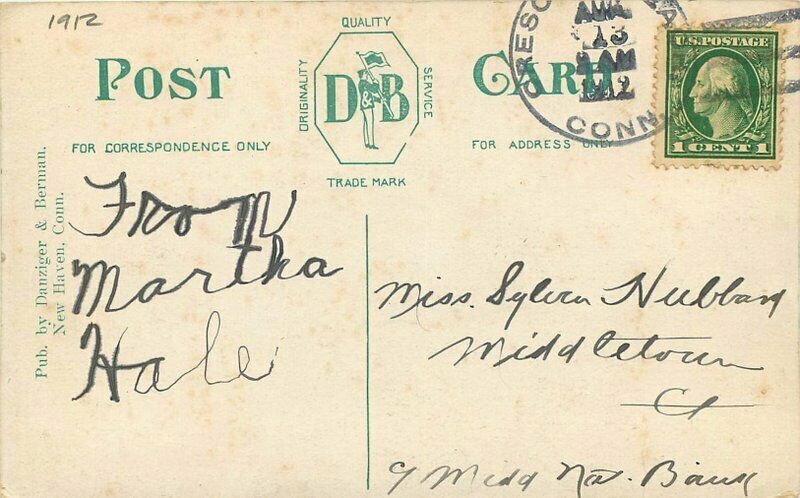 1912
POST CARD
QUALITY
ORIGINALITY
SERVICE
D&B
TRADE MARK
FOR CORRESPONDENCE ONLY
FOR ADDRESS ONLY
AUG
13
AM
1912
CONN.
U.S. POSTAGE
1 CENT 1
Pub. by Danziger & Berman.
New Haven, Conn.
From
Martha
Hale
Miss. Sylvia Hubbard
Middletown
Ct
c/o Midd Nat. Bank